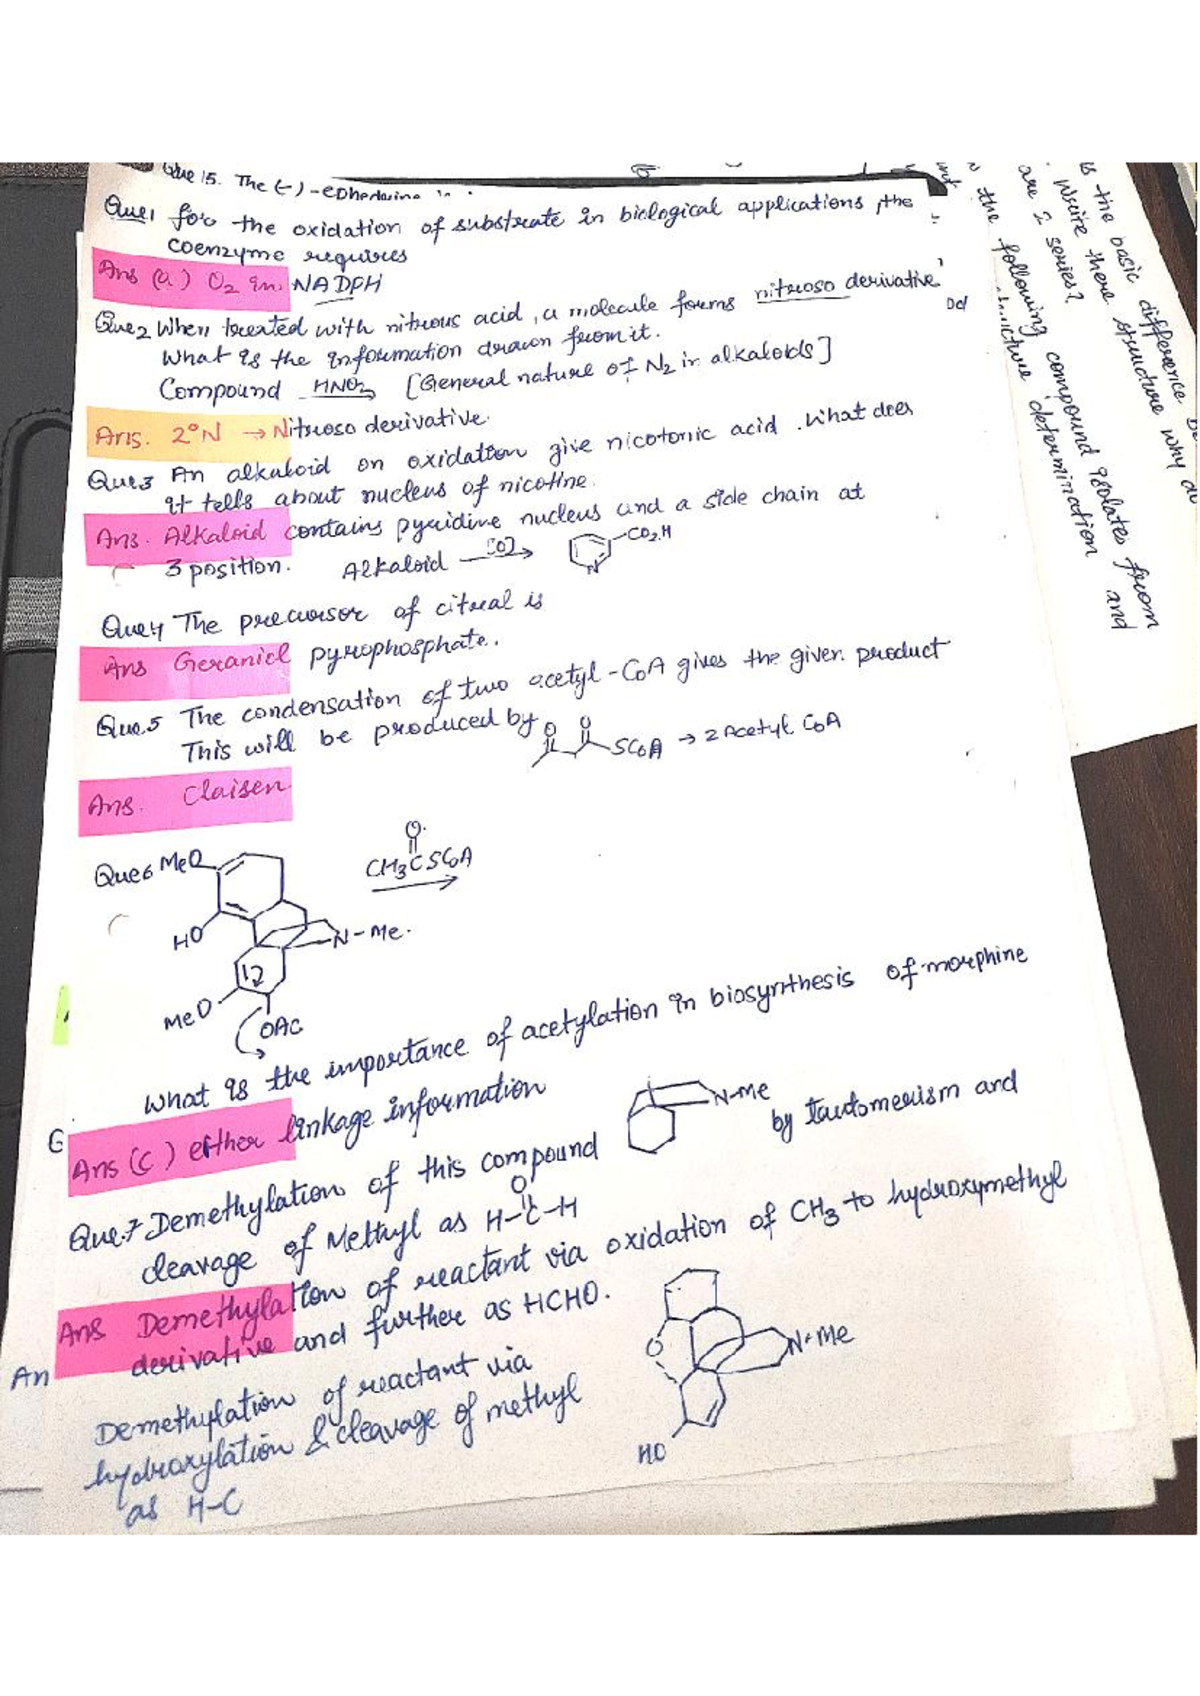 Que 15. The (-)-ephedrine
Que1 for the oxidation of substrate in biological applications, the
coenzyme requires
Ans (a) O2 in NADPH
Que2 When treated with nitrous acid, a molecule forms nitroso derivative
What is the information drawn from it.
Compound HNO2 [General nature of N2 in alkaloids]
Ans. 2°N → Nitroso derivative.
Que3 An alkaloid on oxidation give nicotonic acid. What does
it tells about nucleus of nicotine.
Ans. Alkaloid contains pyridine nucleus and a side chain at
3 position. Alkaloid [O] → CO2H
N
Que4 The precursor of citral is
Ans Geraniol pyrophosphate.
Que.5 The condensation of two acetyl-CoA gives the given product
This will be produced by O O SCoA → 2 Acetyl CoA
Ans. Claisen
Que6 MeO
O
CH3CSCoA
HO
N-Me.
12
MeO
OAC
What is the importance of acetylation in biosynthesis of morphine
Ans (c) ether linkage information
Que.7 Demethylation of this compound N-Me by tautomerism and
cleavage of Methyl as H-C-H
O
Ans Demethylation of reactant via oxidation of CH3 to hydroxymethyl
derivative and further as HCHO.
An
O
N-Me
HO
Demethylation of reactant via
hydroxylation & cleavage of methyl
as H-C
is the basic difference
Write there structure why do
are 2 series?
the following compound isolates from
structure determination and